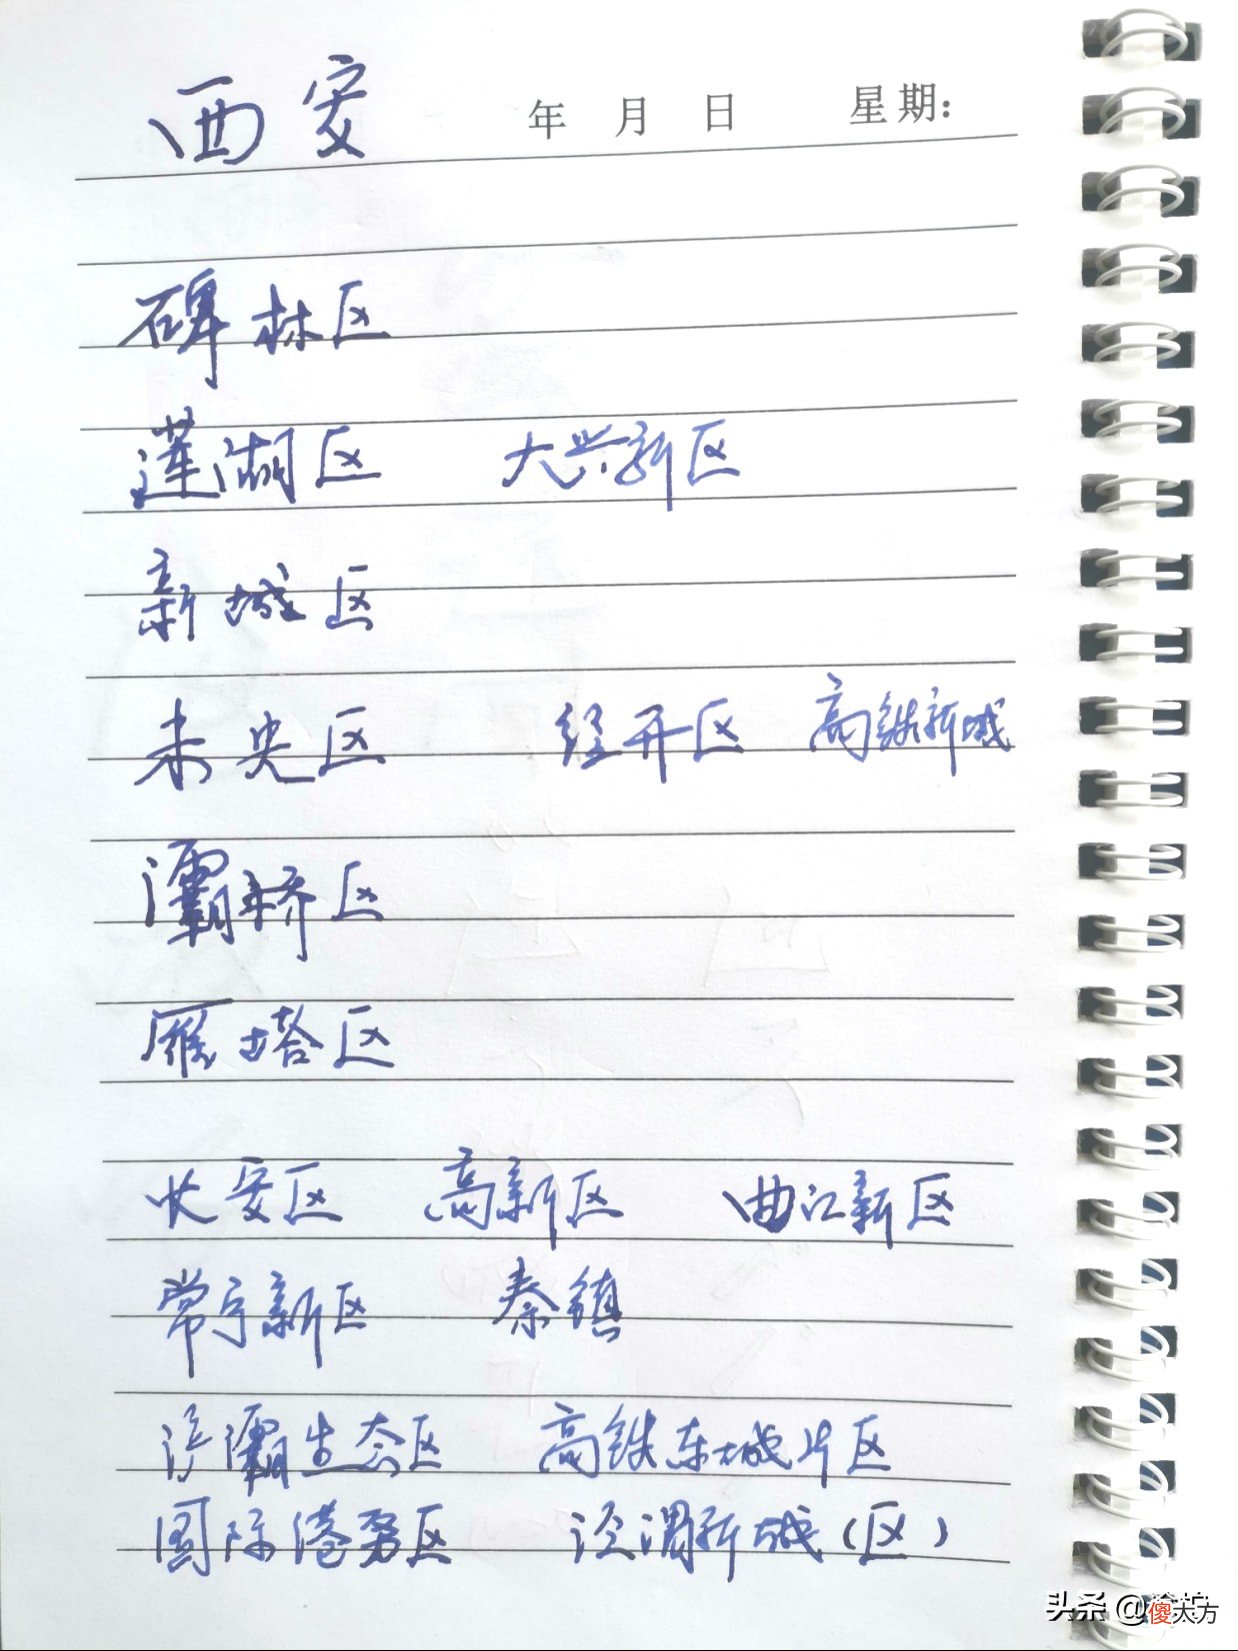 西安 年 月 日 星期:
碑林区
莲湖区 大兴新区
新城区
未央区 经开区 高铁新城
灞桥区
雁塔区
长安区 高新区 曲江新区
常宁新区 秦镇
浐灞生态区 高铁东城片区
国际港务区 泾渭新城(区)
头条 @傻大方